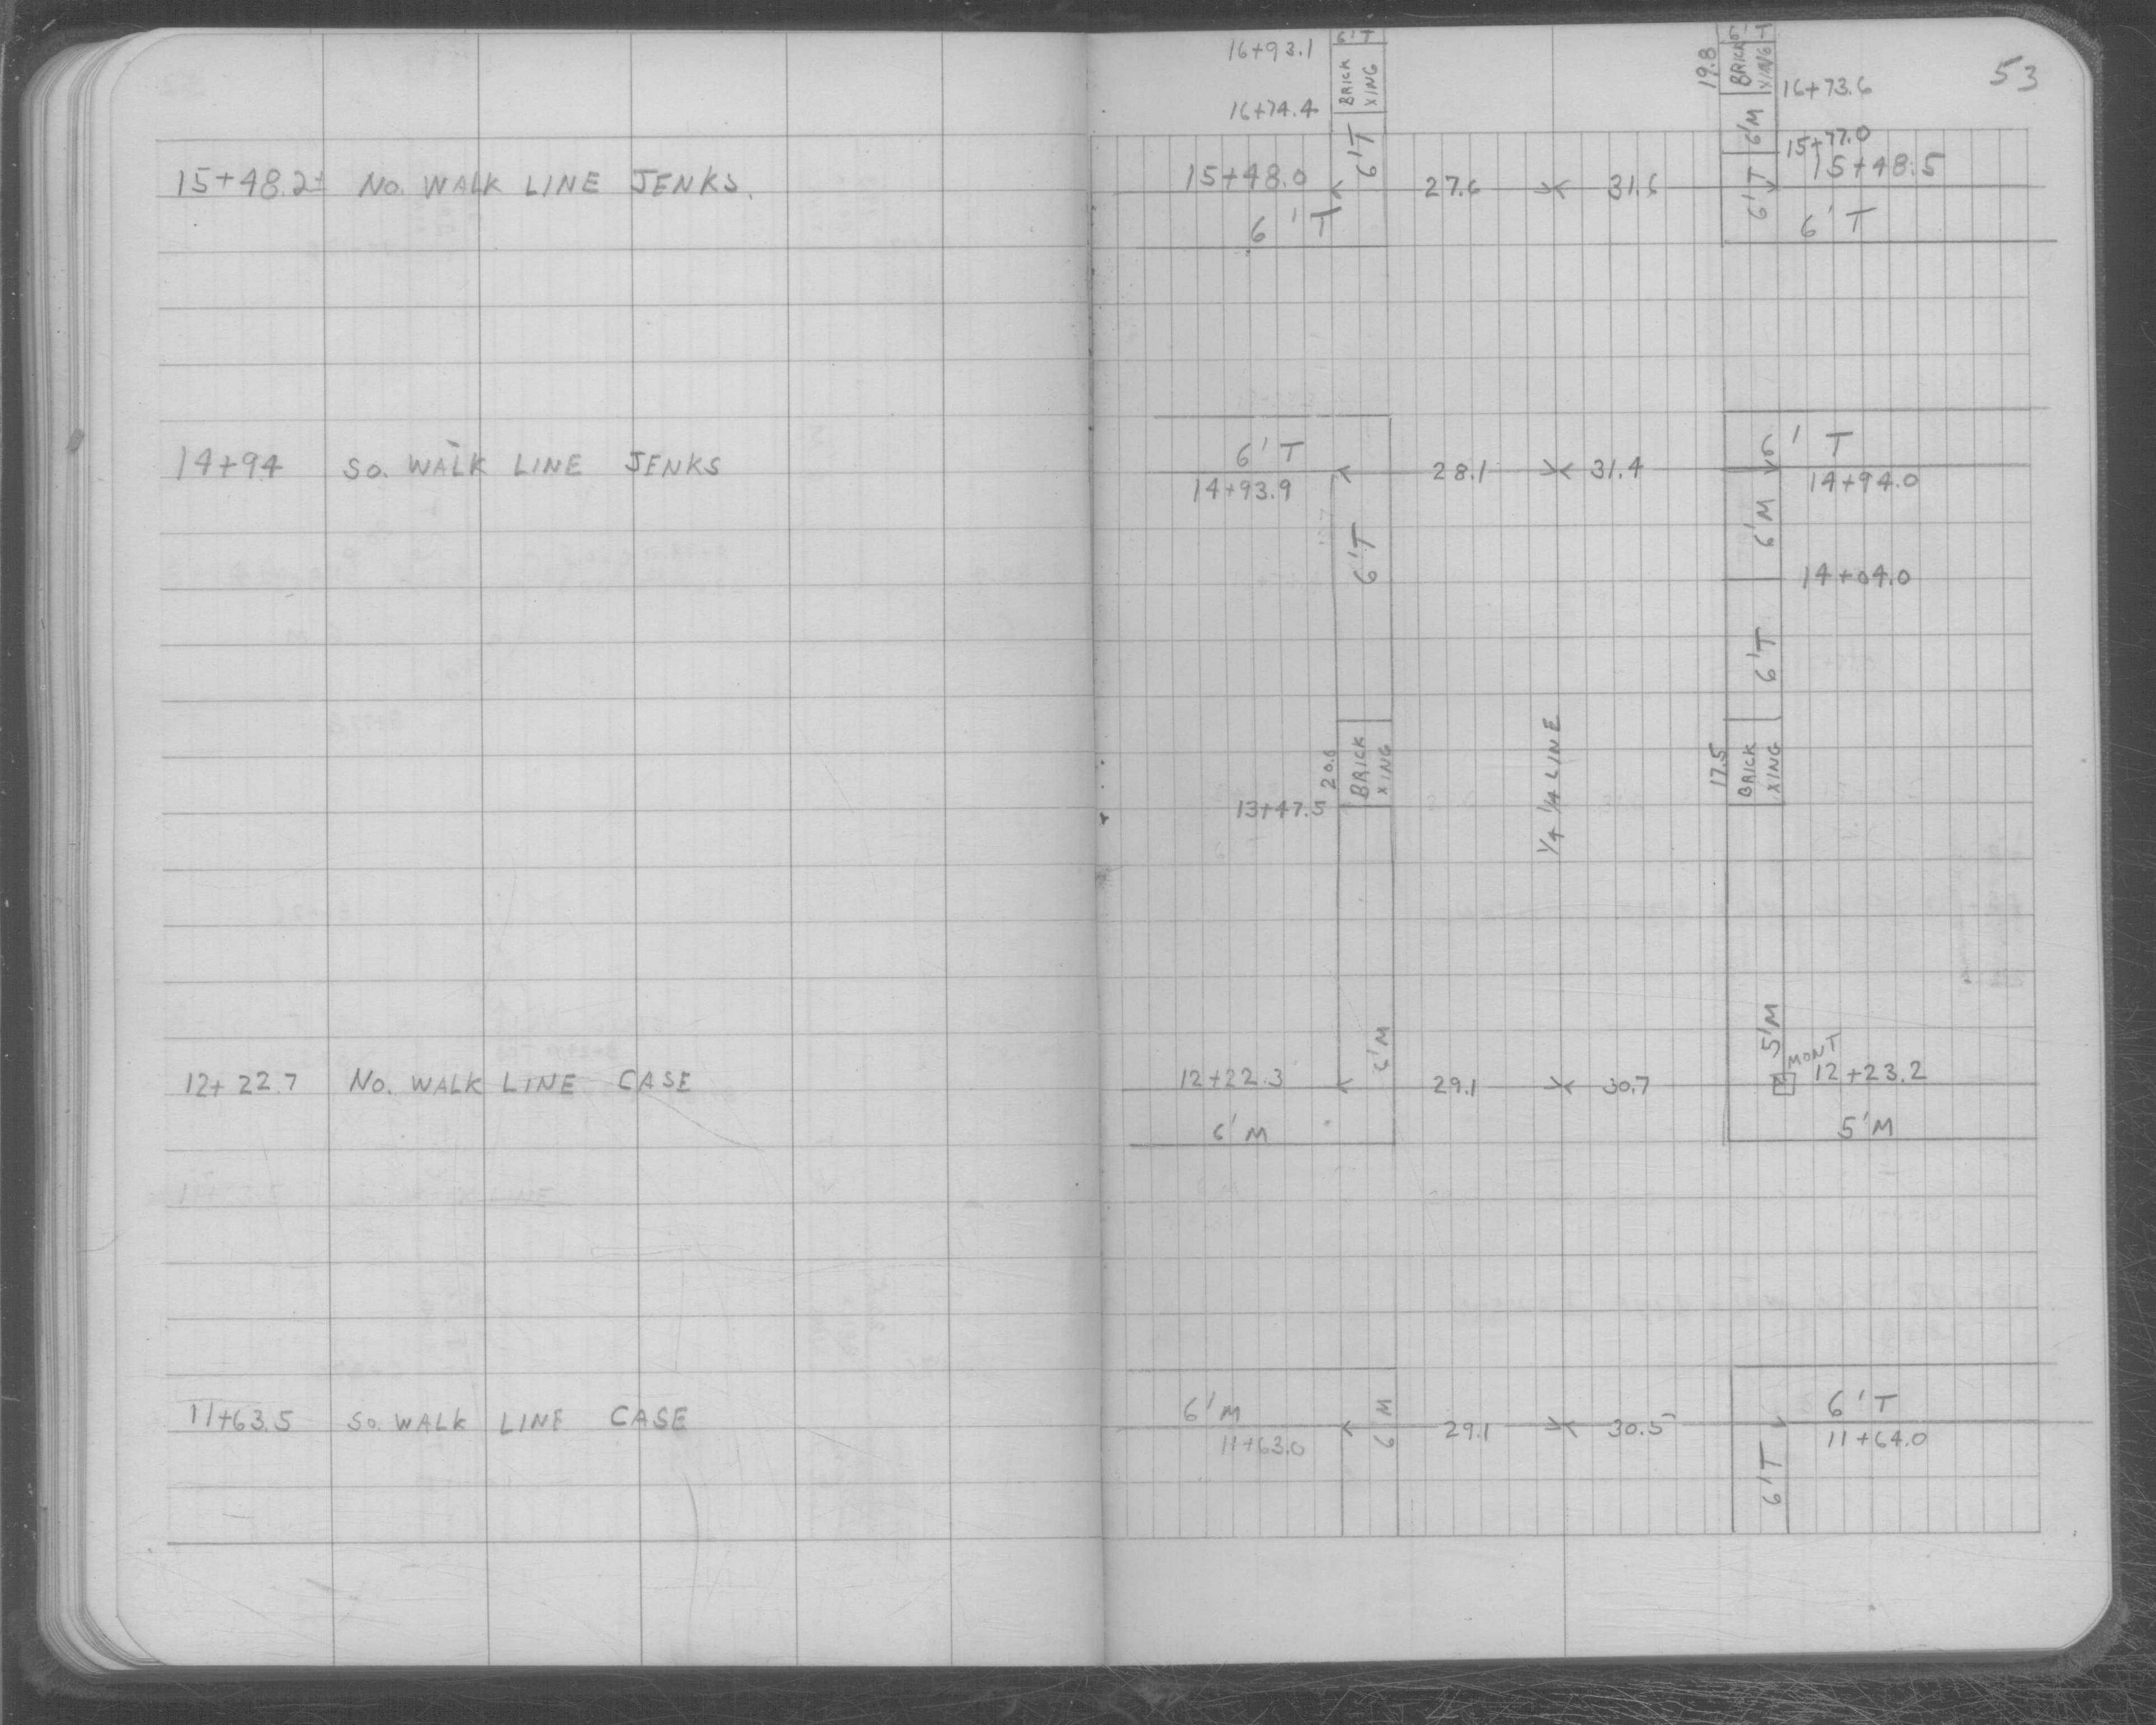 53
16+93.1
6'T
BRICK XING
16+74.4
6'T
19.8
5' T
BRICK XING
16+73.6
6'M
15+77.0
15+48.2± No. WALK LINE JENKS.
15+48.0
27.6
31.6
6'T
15+48.5
6'T
6'T
14+94 So. WALK LINE JENKS
6'T
28.1
31.4
6' T
14+93.9
14+94.0
6'T
6'M
14+04.0
6'T
20.6
BRICK XING
13+47.5
1/4 1/4 LINE
17.5
BRICK XING
6'M
5'M
MONT
12+22.7 No. WALK LINE CASE
12+22.3
29.1
30.7
12+23.2
6'M
5'M
11+63.5 So. WALK LINE CASE
6'M
6 M
29.1
30.5
6'T
11+63.0
11+64.0
6'T